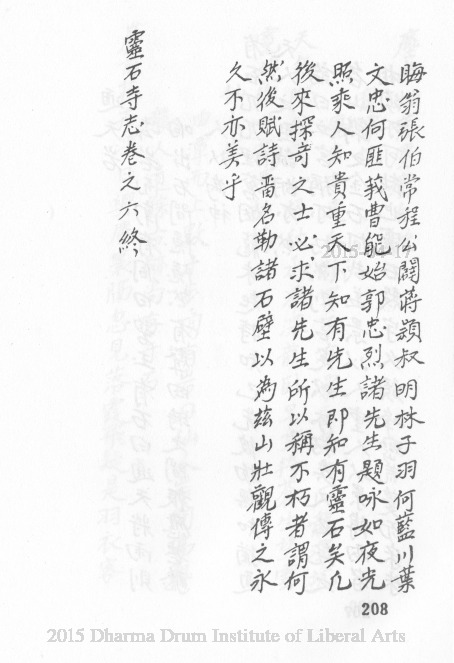 晦翁張伯常程公闢蔣頴叔明林子羽何藍川葉
文忠何匪莪曹能始郭忠烈諸先生題咏如夜光
照乘人知貴重天下知有先生即知有靈石矣凡
後來探奇之士必求諸先生所以稱不朽者謂何
然後賦詩畱名勒諸石壁以為茲山壯觀傳之永
久不亦美乎
靈石寺志卷之六終
208
2015 Dharma Drum Institute of Liberal Arts